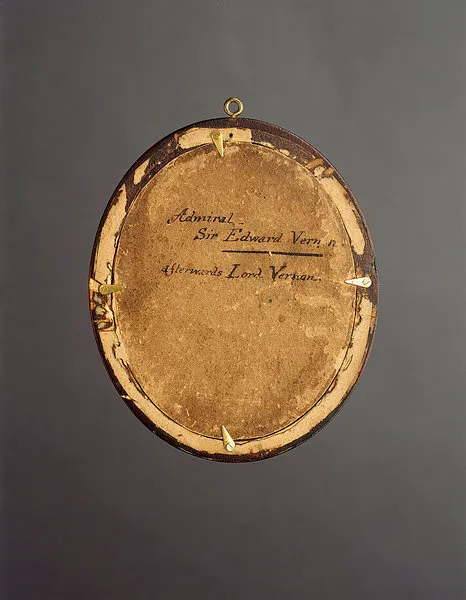 Admiral
Sir Edward Vern n
afterwards Lord Vernon.